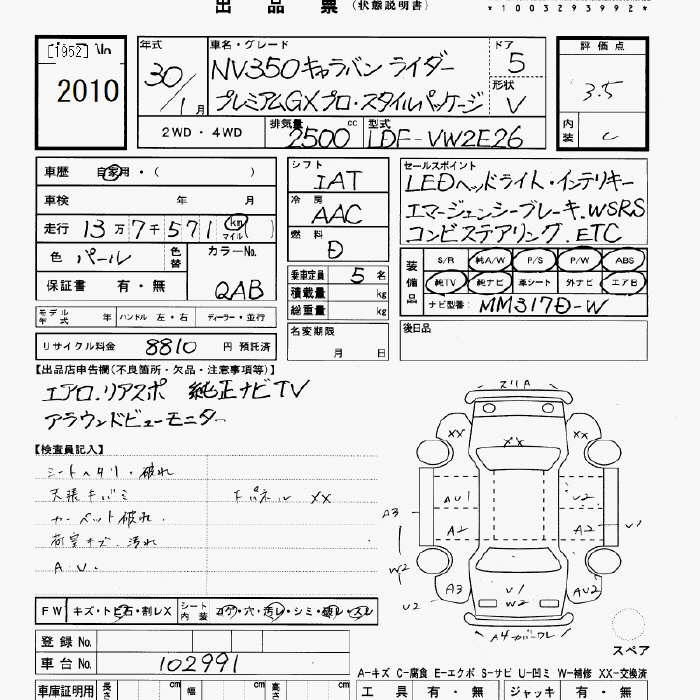 出品票 (状態説明書)
*1003293992*
[1952]
2010
年式
30/1月
車名・グレード
NV350キャラバン ライダー
プレミアムGXプロ・スタイルパッケージ
ドア
5
形状
V
評価点
3.5
内装
C
2WD・4WD
排気量
2500 cc
型式
LDF-VW2E26
車歴 自家用・( )
車検 年 月
走行 13万7千571 km マイル )
色 パール 色替 カラーNo.
保証書 有・無 QAB
モデル年式 年 ハンドル 左・右 ディーラー・並行
リサイクル料金 8810 円 預託済
シフト
IAT
冷房
AAC
燃料
D
乗車定員 5 名
積載量 kg
総重量 kg
名変期限
月 日
セールスポイント
LEDヘッドライト・インテリキー
エマージェンシーブレーキ.WSRS
コンビステアリング.ETC
装備品
S/R 純A/W P/S P/W ABS
純TV 純ナビ 革シート 外ナビ エアB
ナビ型番: MM317D-W
後日品
【出品店申告欄(不良箇所・欠品・注意事項等)】
エアロ.リアスポ 純正ナビTV
アラウンドビューモニター
【検査員記入】
シートヘタリ・破れ
天張キバミ
カーペット破れ.
荷室キズ・汚れ
A.U.
XX
FW キズ・トビ石・割レX シート内装 コゲ・穴・汚レ・シミ・破レ・スレ
登録No.
車台No. 102991
車庫証明用 長さ cm 幅 cm 高さ cm
スリA
XX
XX
XX
AU1
U2
A3
A2
A2
U1
W2
A3
U1
W2
AU2
U2
A4カバーワレ
スペア
A-キズ C-腐食 E-エクボ S-サビ U-凹ミ W-補修 XX-交換済
工具 有・無 ジャッキ 有・無